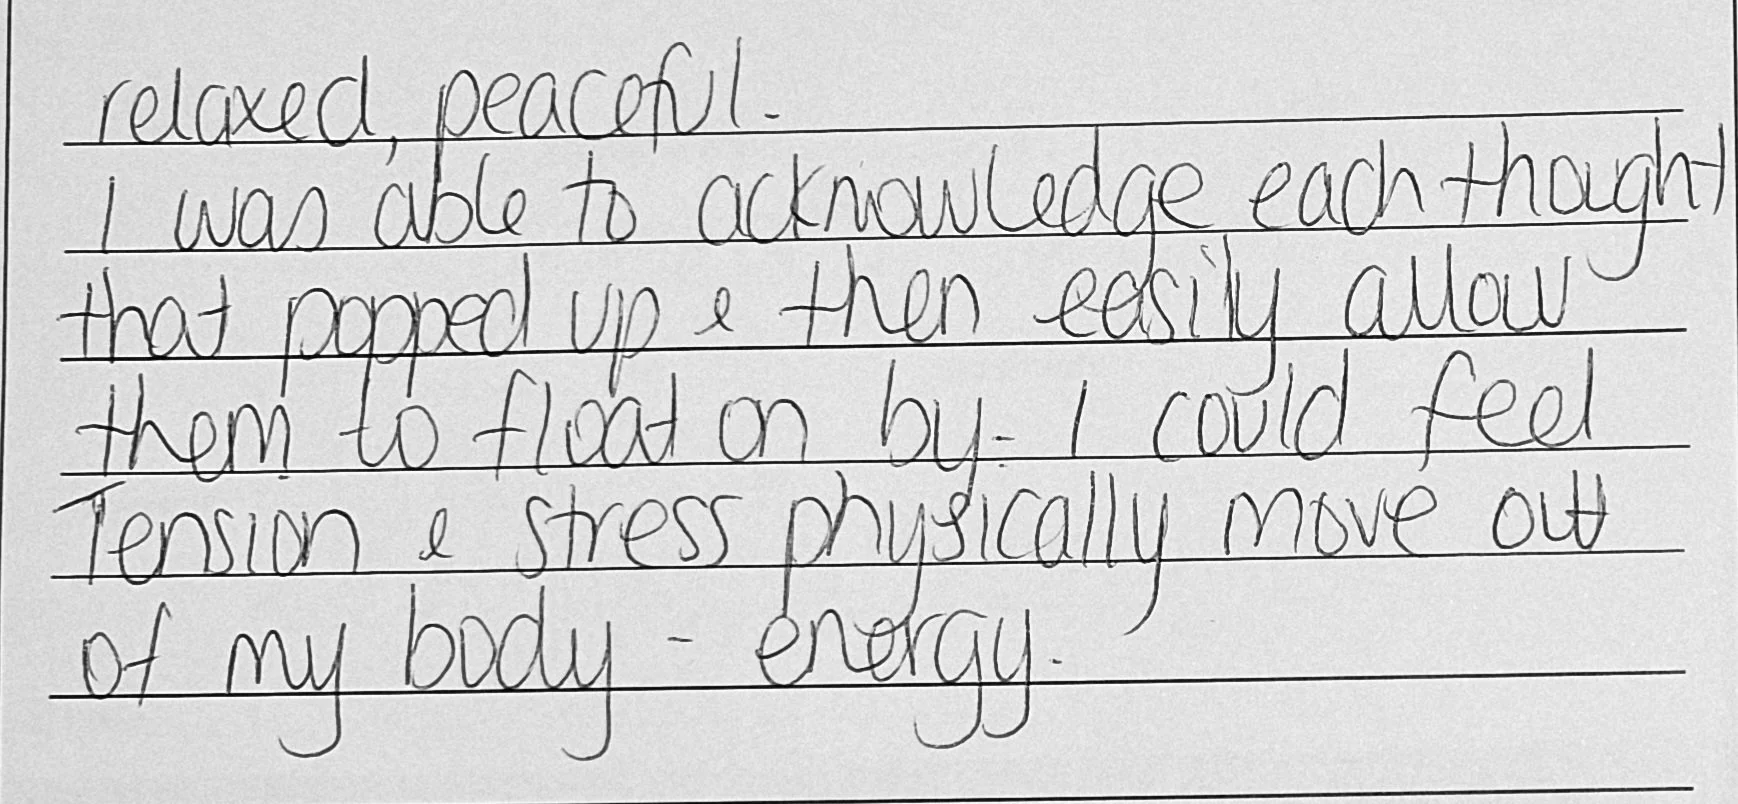 relaxed, peaceful.
I was able to acknowledge each thought
that popped up & then easily allow
them to float on by. I could feel
Tension & stress physically move out
of my body - energy.